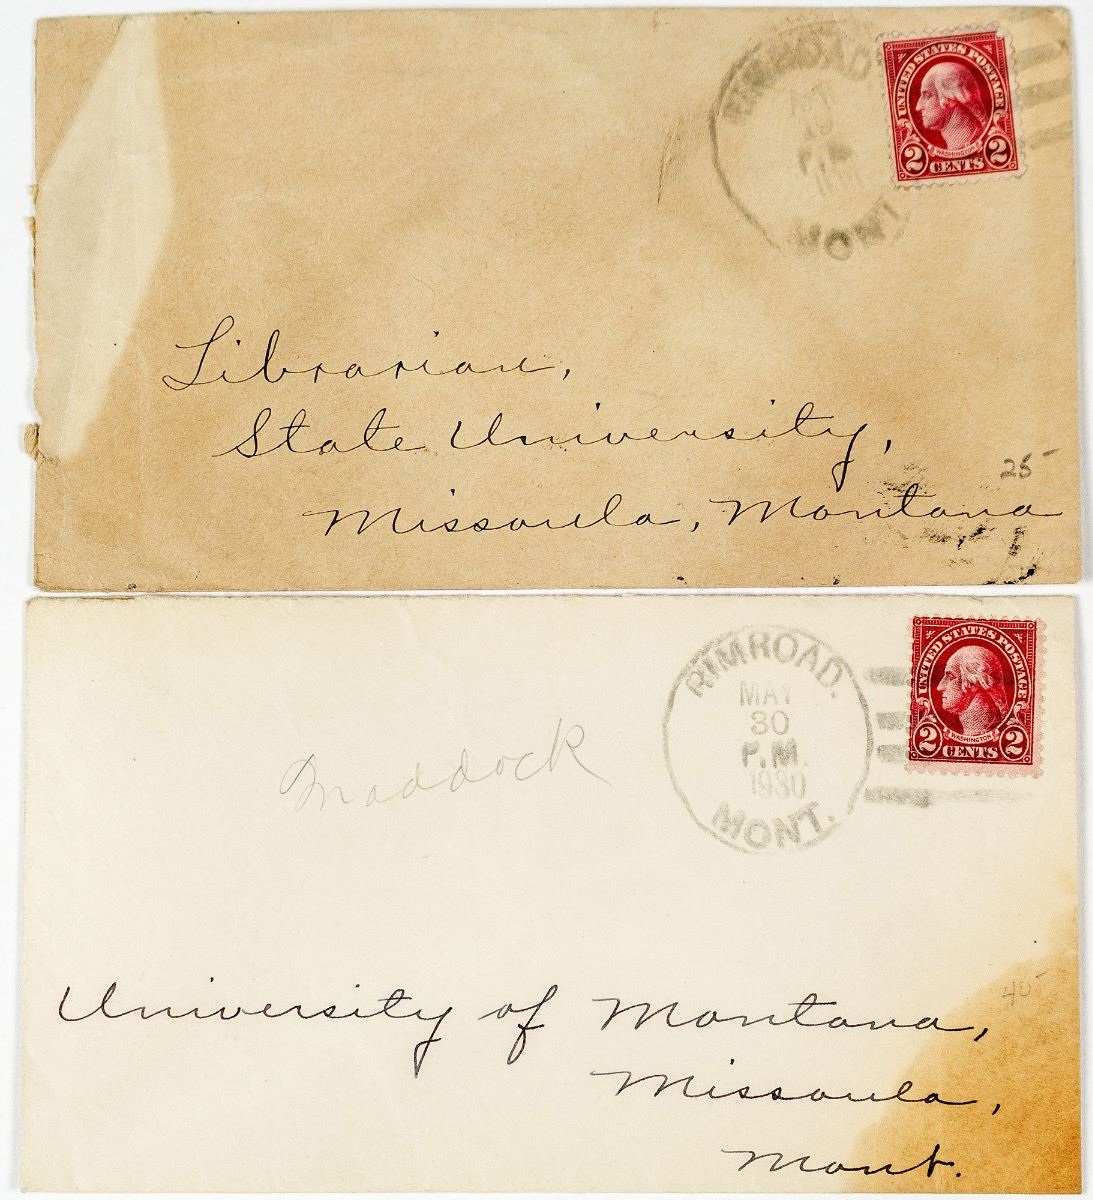 RIMROAD
MONT.
UNITED STATES POSTAGE
WASHINGTON
2 CENTS 2
Librarian,
State University,
Missoula, Montana
25
RIMROAD.
MAY
30
P.M.
1930
MONT.
UNITED STATES POSTAGE
WASHINGTON
2 CENTS 2
Maddock
University of Montana,
Missoula,
Mont.
40